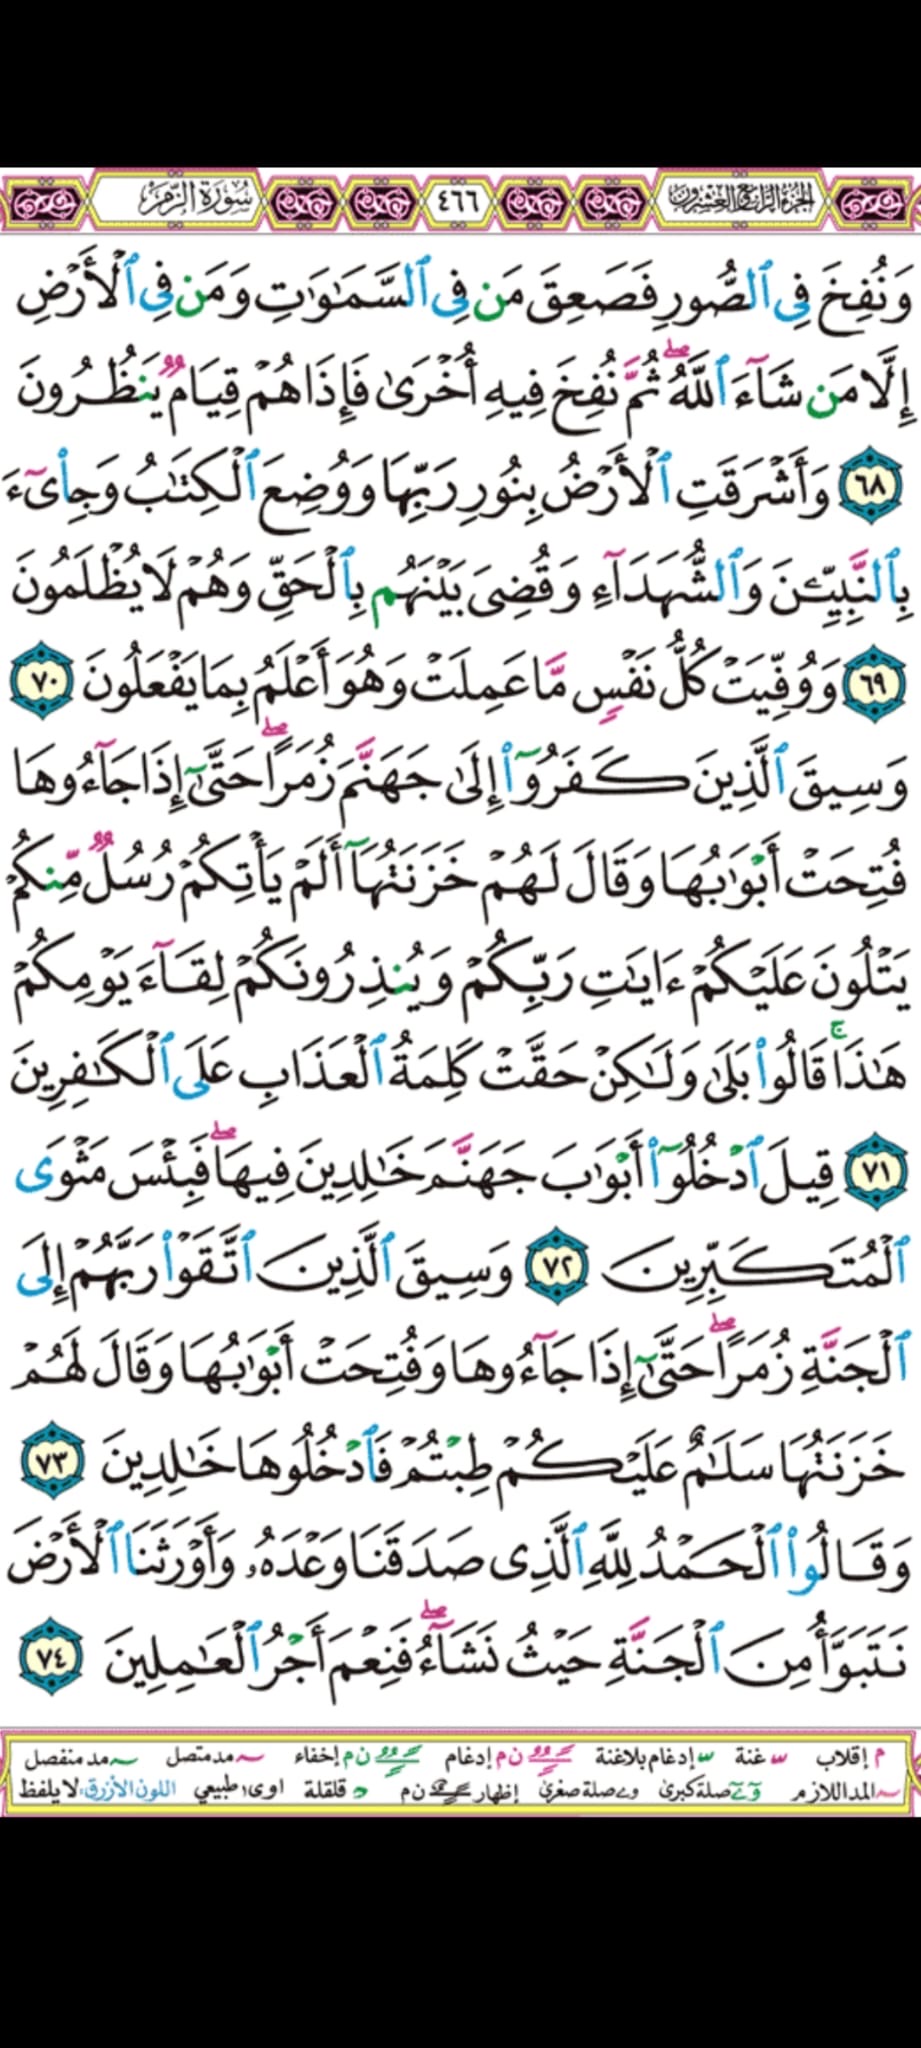 الجزء الرابع والعشرون
٤٦٦
سورة الزمر
وَنُفِخَ فِى ٱلصُّورِ فَصَعِقَ مَن فِى ٱلسَّمَٰوَٰتِ وَمَن فِى ٱلْأَرْضِ
إِلَّا مَن شَآءَ ٱللَّهُ ۖ ثُمَّ نُفِخَ فِيهِ أُخْرَىٰ فَإِذَا هُمْ قِيَامٌ يَنظُرُونَ
٦٨ وَأَشْرَقَتِ ٱلْأَرْضُ بِنُورِ رَبِّهَا وَوُضِعَ ٱلْكِتَٰبُ وَجِا۟ىٓءَ
بِٱلنَّبِيِّـۧنَ وَٱلشُّهَدَآءِ وَقُضِىَ بَيْنَهُم بِٱلْحَقِّ وَهُمْ لَا يُظْلَمُونَ
٦٩ وَوُفِّيَتْ كُلُّ نَفْسٍ مَّا عَمِلَتْ وَهُوَ أَعْلَمُ بِمَا يَفْعَلُونَ ٧٠
وَسِيقَ ٱلَّذِينَ كَفَرُوٓا۟ إِلَىٰ جَهَنَّمَ زُمَرًا ۖ حَتَّىٰٓ إِذَا جَآءُوهَا
فُتِحَتْ أَبْوَٰبُهَا وَقَالَ لَهُمْ خَزَنَتُهَآ أَلَمْ يَأْتِكُمْ رُسُلٌ مِّنكُمْ
يَتْلُونَ عَلَيْكُمْ ءَايَٰتِ رَبِّكُمْ وَيُنذِرُونَكُمْ لِقَآءَ يَوْمِكُمْ
هَٰذَا ۚ قَالُوا۟ بَلَىٰ وَلَٰكِنْ حَقَّتْ كَلِمَةُ ٱلْعَذَابِ عَلَى ٱلْكَٰفِرِينَ
٧١ قِيلَ ٱدْخُلُوٓا۟ أَبْوَٰبَ جَهَنَّمَ خَٰلِدِينَ فِيهَا ۖ فَبِئْسَ مَثْوَى
ٱلْمُتَكَبِّرِينَ ٧٢ وَسِيقَ ٱلَّذِينَ ٱتَّقَوْا۟ رَبَّهُمْ إِلَى
ٱلْجَنَّةِ زُمَرًا ۖ حَتَّىٰٓ إِذَا جَآءُوهَا وَفُتِحَتْ أَبْوَٰبُهَا وَقَالَ لَهُمْ
خَزَنَتُهَا سَلَٰمٌ عَلَيْكُمْ طِبْتُمْ فَٱدْخُلُوهَا خَٰلِدِينَ ٧٣
وَقَالُوا۟ ٱلْحَمْدُ لِلَّهِ ٱلَّذِى صَدَقَنَا وَعْدَهُۥ وَأَوْرَثَنَا ٱلْأَرْضَ
نَتَبَوَّأُ مِنَ ٱلْجَنَّةِ حَيْثُ نَشَآءُ ۖ فَنِعْمَ أَجْرُ ٱلْعَٰمِلِينَ ٧٤
م إقلاب غنة إدغام بلاغنة ن م إدغام ن م إخفاء مد متصل مد منفصل
المد اللازم صلة كبرى صلة صغرى إظهار ن م قلقلة اوى طبيعي اللون الأزرق: لا يلفظ